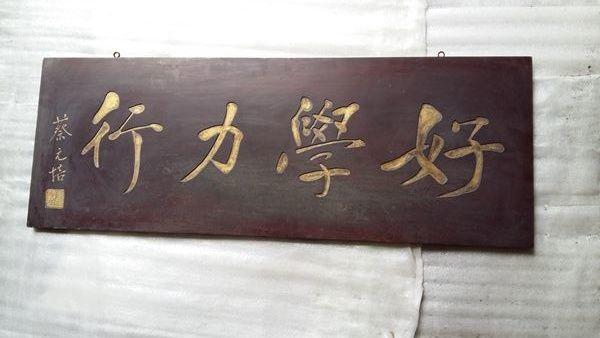 好學力行
蔡元培